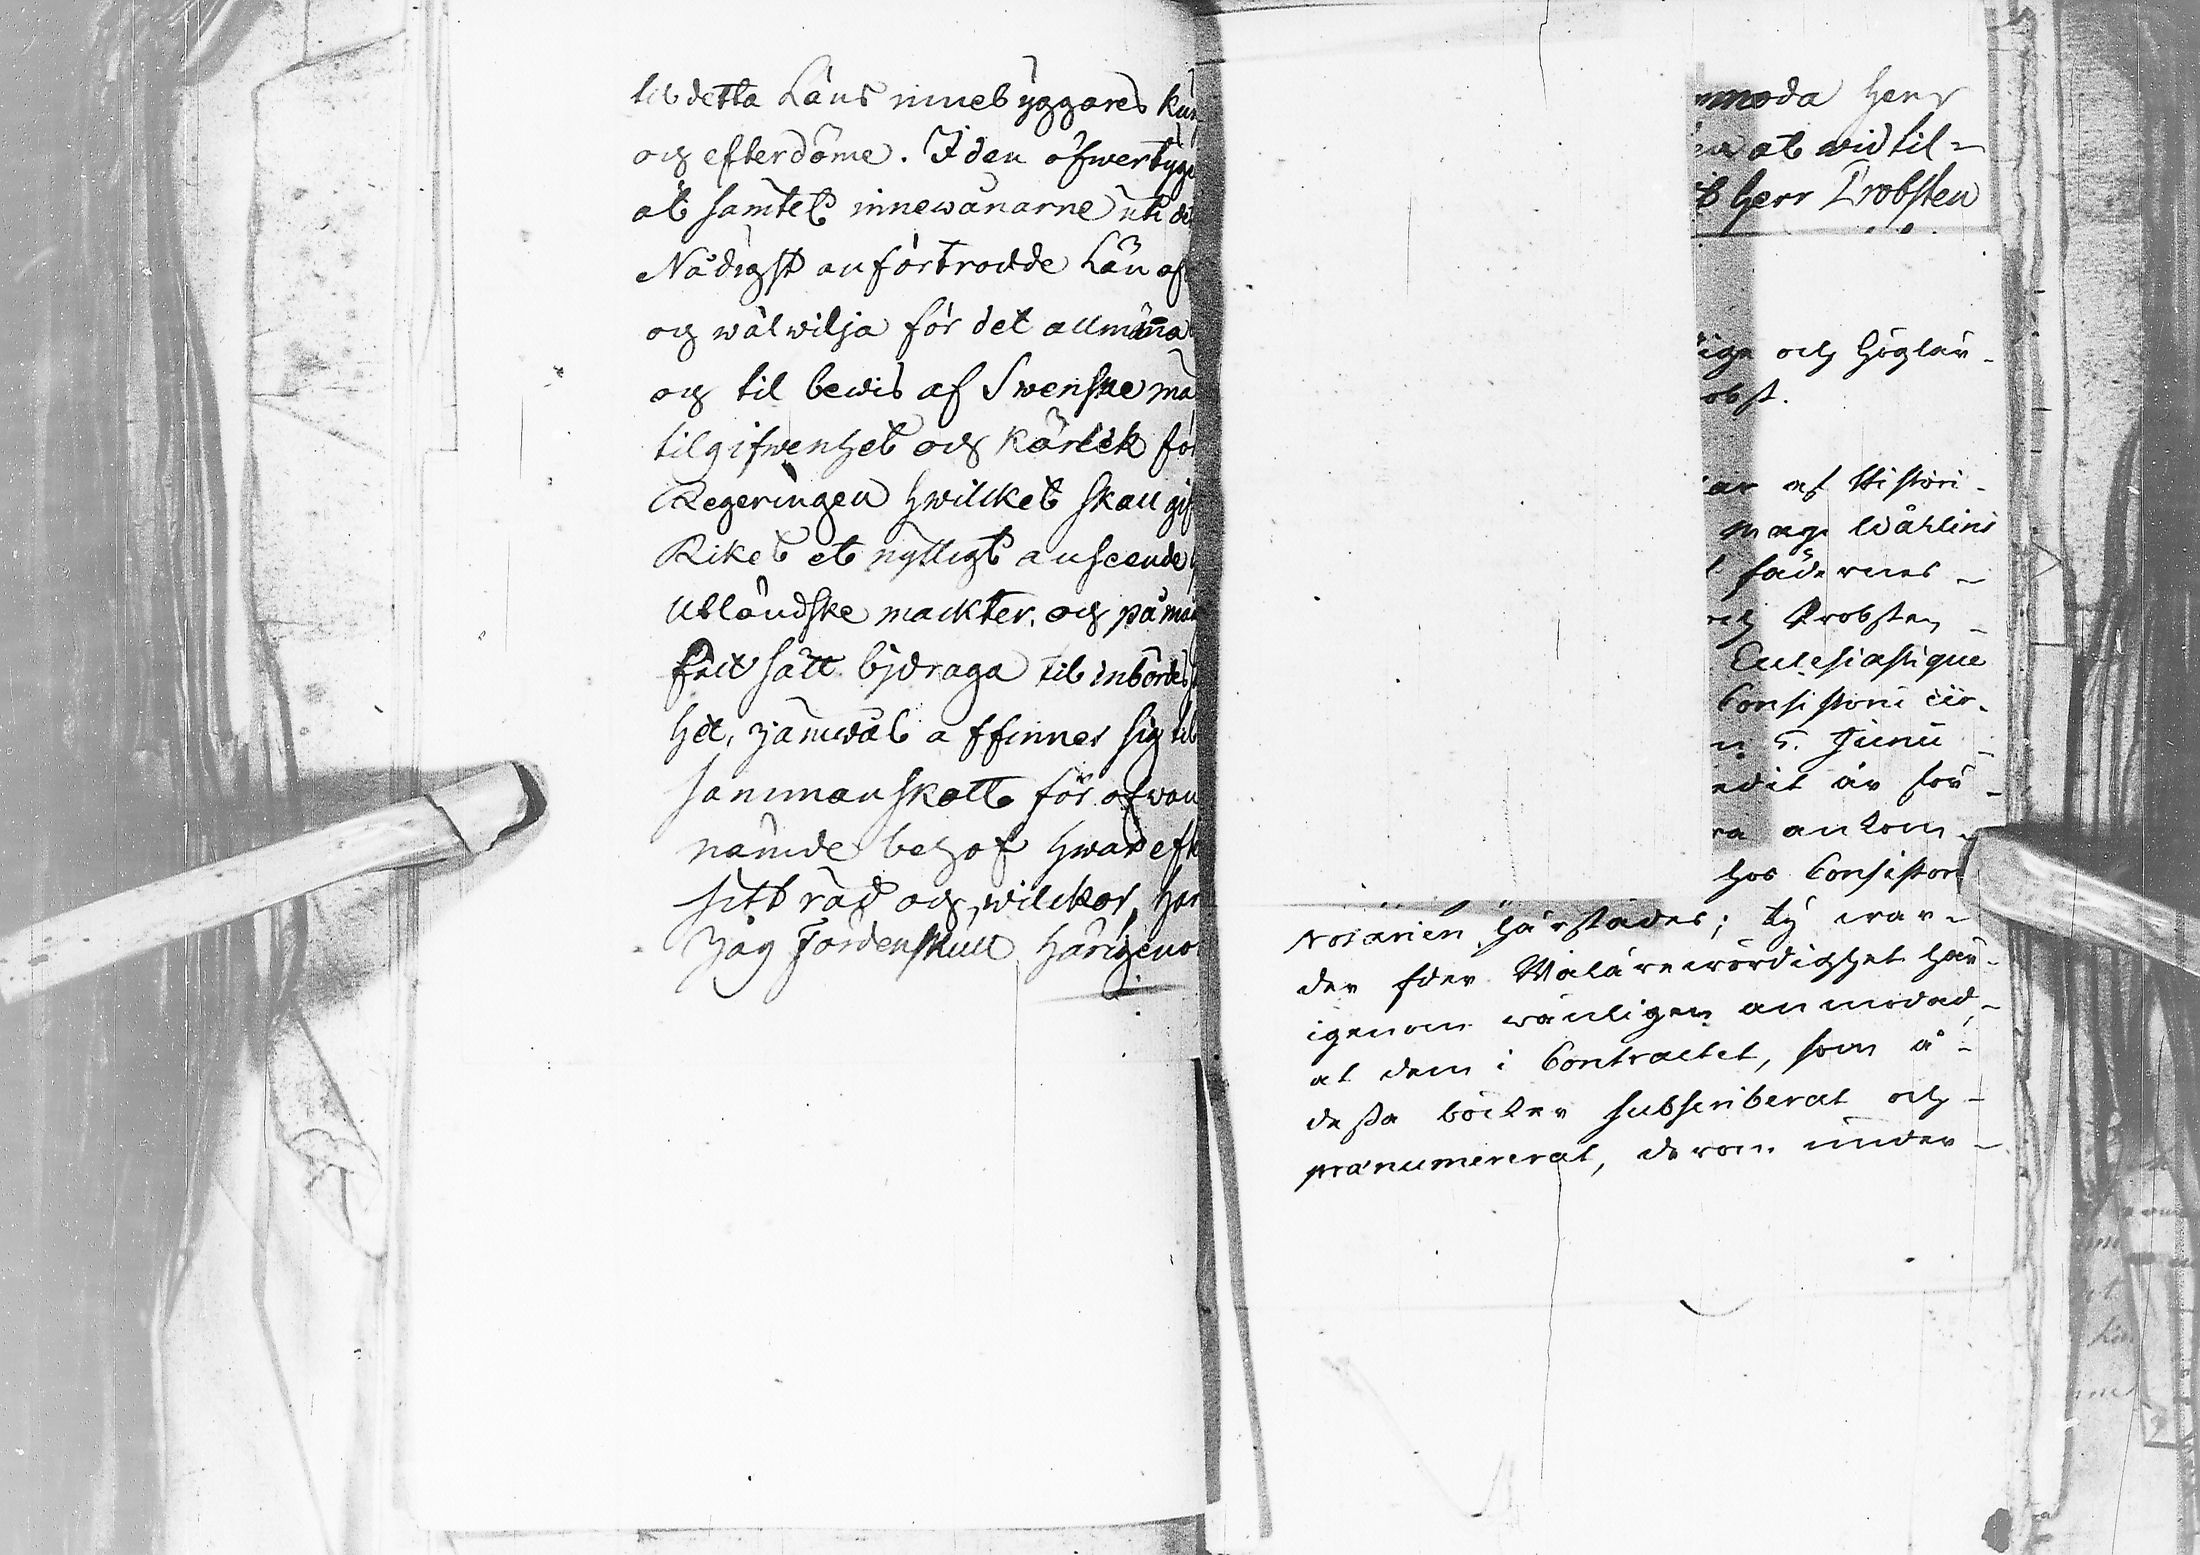 til detta Läns innebyggares kun
och efterdöme. I den öfwertyge
at samtel. innewånarne uti de
Nådigst anförtrodde Län af
och wälwilja för det allmänna
och til bewis af Swenske ma
tilgifwenhet och Kärlek för
Regeringen hwilcket skall gif
Riket et nyttigt anseende
Utländske mackter. och på
sätt bjdraga til inbördes
het, jämwäl affinner sig til
sammanskott för ofwan
nämde behof hwar efte
sitt råd och wilckor, har
Jag härigeno
moda Herr
at wid til-
Herr Probsten
och Höglär-
obst.
af Histori-
Wåhlins
fädernes-
Probsten
Ecclesiastique
Consistorii cir-
5. Junii
edit är för-
ankom-
hos Consistori
Notarien härstädes; ty war-
der Eder Wälärewördighet här-
igenom wänligen anmodad,
at dem i Contractet, som å-
dessa böcker subscriberat och
pränumererat, derom under-